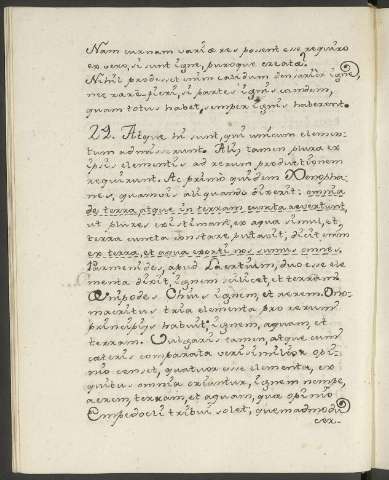 Nam cur nam variæ res posent esse requiro
ex vero, si sunt igne, puroque creatæ?
Nihil prodesset enim calidum densarier igne,
nec rare fieri, si partes ignis eandem,
quam totus habet, semper ignis haberent.
22. Atque hi sunt, qui unicum elemen-
tum admisserunt. Alij tamen plura ex
ipsis elementis ad rerum productionem
requirunt. Ac primo quidem Xenopha-
nes, quamvis aliquando dixerit: omnia
de terra, atque in terram cuncta revertunt,
ut plures existimant, ex aqua simul, et
terra cuncta constare putavit; dicit enim
ex terra, et aqua exorti nos sumus omnes.
Parmenides, apud Laertium, duo esse ele
menta dixit, ignem scilicet, et terram.
Chius ignem, et aerem. Ono-
macritus tria elementa pro rerum
principijs habuit; ignem, aquam, et
terram. Vulgaris tamen, atque cum
cæteris comparata verisimilior opi-
nio censet, quatuor esse elementa, ex
quibus omnia creantur, ignem nempe,
aerem, terram, et aquam, quæ opinio
Empedocli tribui solet, quemadmodū